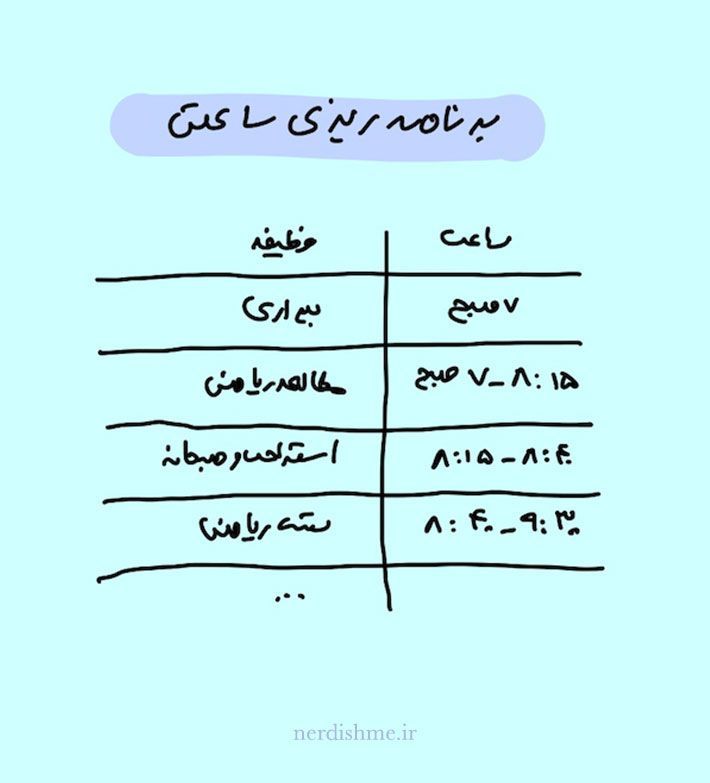 برنامه ریزی ساعتی
ساعت وظیفه
۷ صبح بیداری
۷ – ۸:۱۵ صبح مطالعه ریاضی
۸:۱۵ – ۸:۴۰ استراحت و صبحانه
۸:۴۰ – ۹:۳۰ تست ریاضی
...
nerdishme.ir